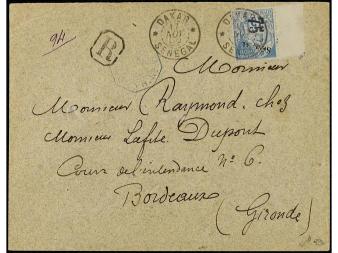 94
R
DAKAR
SENEGAL
DAKAR
Monsieur
Raymond. chez
Monsieur Lafite Dupont
Cours de l'intendance N° 6.
Bordeaux
(Gironde)